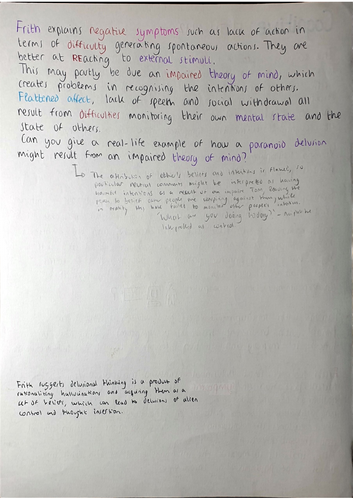 Frith explains negative symptoms such as lack of action in
terms of difficulty generating spontaneous actions. They are
better at REacting to external stimuli.
This may partly be due an impaired theory of mind, which
creates problems in recognising the intentions of others.
Flattened affect, lack of speech and social withdrawal all
result from difficulties monitoring their own mental state and the
state of others.
Can you give a real-life example of how a paranoid delusion
might result from an impaired theory of mind?
The attribution of other's beliefs and intentions is flawed, so
particular neutral comments might be interpreted as having
as a result of an impaired ToM, leading the
to believe some people are conspiring against them, while
in reality they have failed to monitor other people's
"What are you doing today?" -
interpreted as
Frith suggests delusional thinking is a product of
rationalising hallucinations and acquiring them as a
set of beliefs, which can lead to delusions of alien
control and thought insertion.